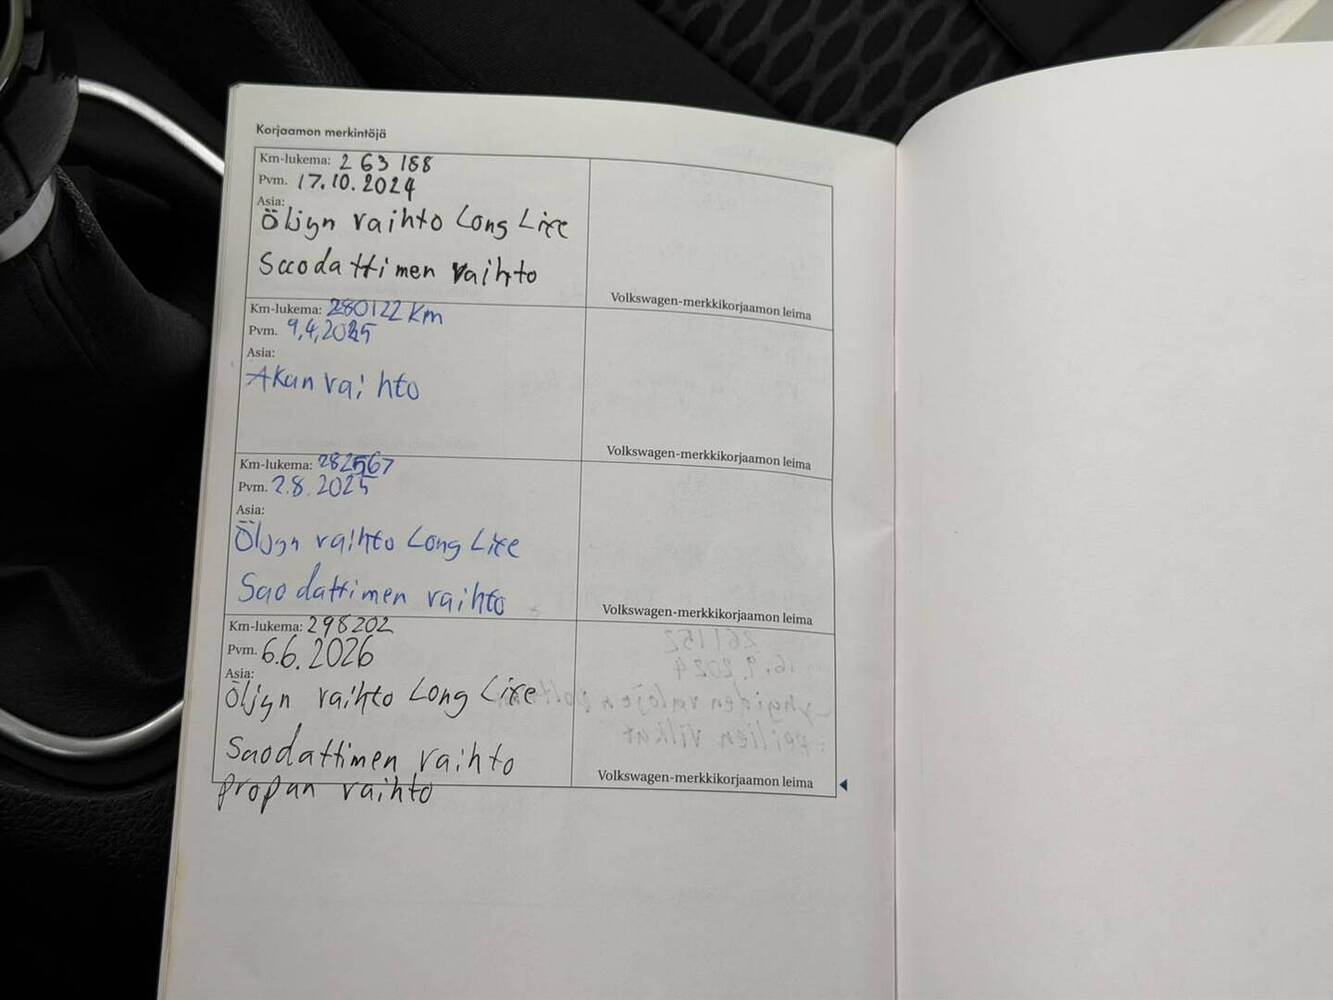 Korjaamon merkintöjä
Km-lukema: 263 188
Pvm. 17.10.2024
Asia:
Öljyn vaihto Long Life
Suodattimen vaihto
Volkswagen-merkkikorjaamon leima
Km-lukema: 280122 Km
Pvm. 9.4.2025
Asia:
Akun vaihto
Volkswagen-merkkikorjaamon leima
Km-lukema: 282567
Pvm. 2.8.2025
Asia:
Öljyn vaihto Long Life
Suodattimen vaihto
Volkswagen-merkkikorjaamon leima
Km-lukema: 298202
Pvm. 6.6.2026
Asia:
Öljyn vaihto Long Life
Suodattimen vaihto
propan vaihto
Volkswagen-merkkikorjaamon leima